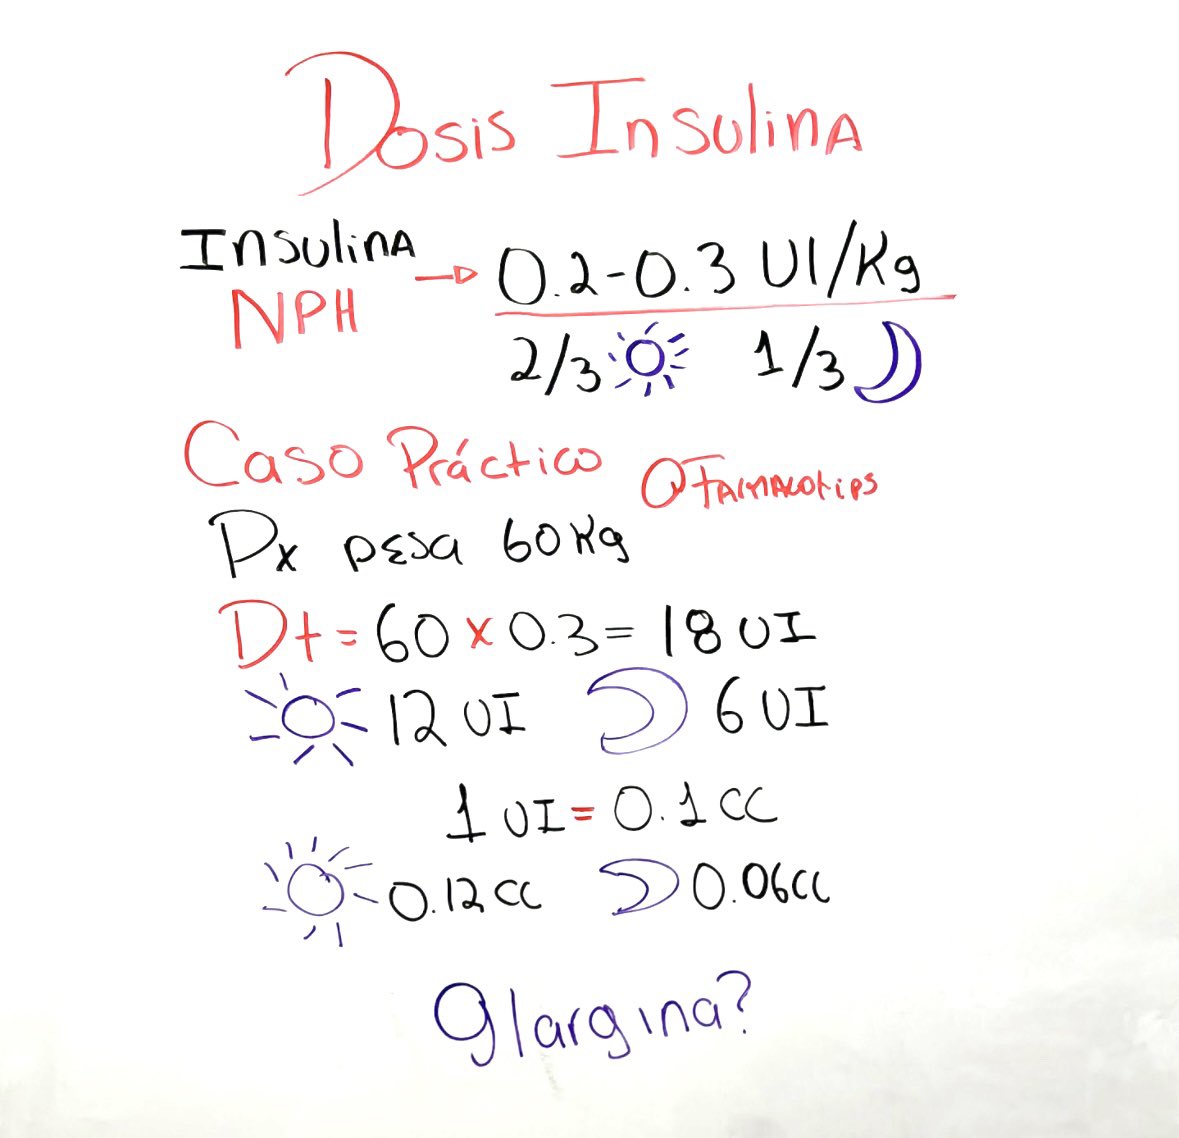 Dosis Insulina
Insulina NPH → 0.2-0.3 UI/Kg
2/3 1/3
Caso Práctico
@Farmacotips
Px pesa 60 Kg
Dt = 60 x 0.3 = 18 UI
12 UI 6 UI
1 UI = 0.1 cc
0.12 cc 0.06 cc
Glargina?